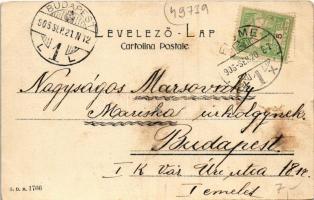 49719
BUDAPEST
905 SEP. 21 N 12
1
LEVELEZŐ-LAP
Cartolina Postale.
FIUME
Nagyságos Marsovszky
Mariska úrhölgynek
Budapest.
I K Vár Uri utca 18
I emelet
S. D. M. 1766
7-